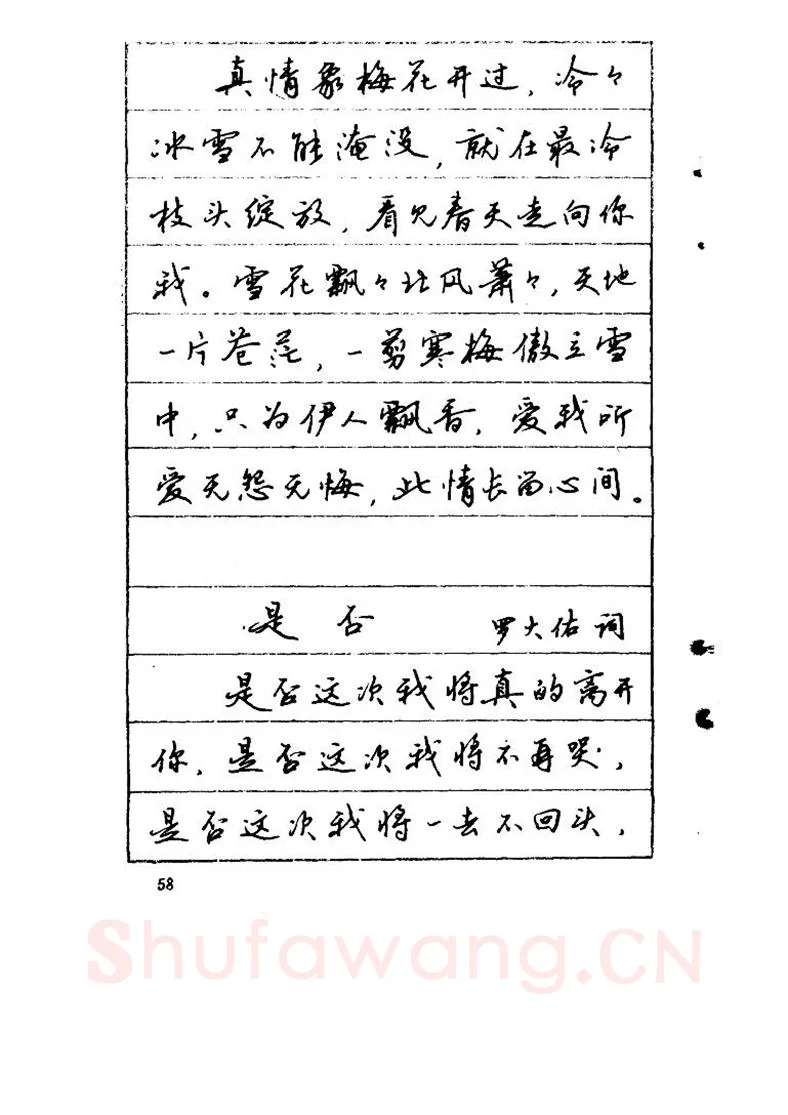 真情象梅花开过，冷々
冰雪不能淹没，就在最冷
枝头绽放，看见春天走向你
我。雪花飘々北风萧々，天地
一片苍茫，一剪寒梅傲立雪
中，只为伊人飘香，爱我所
爱无怨无悔，此情长留心间。
是否 罗大佑词
是否这次我将真的离开
你，是否这次我将不再哭，
是否这次我将一去不回头，
58
Shufawang.CN